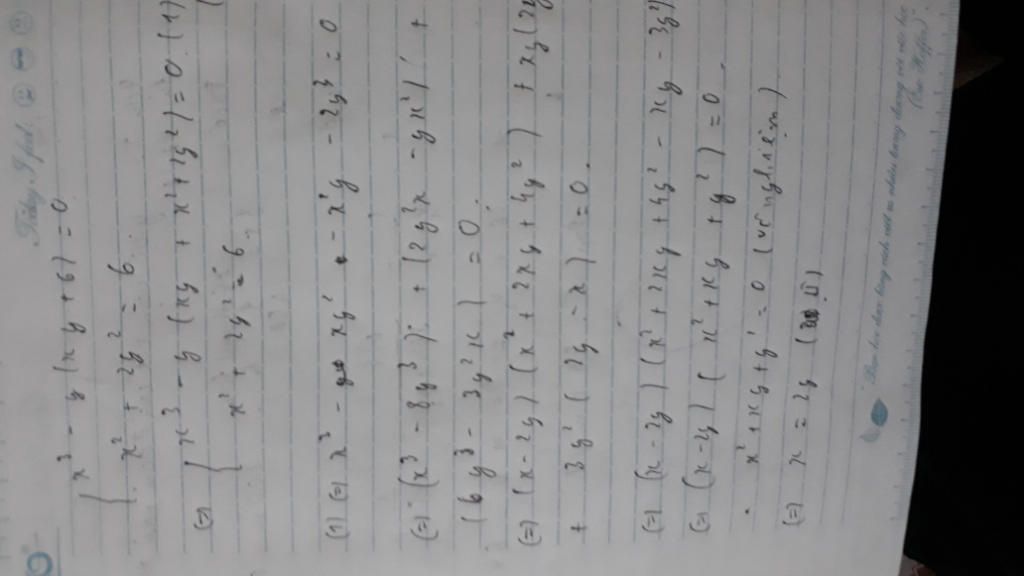 Today I feel
{ x³ - y(xy + 6) = 0
x² + 2y² = 6
(=) { x³ - y(xy + x² + 2y²) = 0 (1)
x² + 2y² = 6
(1) (=) x³ - xy² - x²y - 2y³ = 0
(=) (x³ - 8y³) + (2y²x - yx²) +
(6y³ - 3y²x) = 0
(=) (x - 2y)(x² + 2xy + 4y²) + xy(2y
+ 3y²(2y - x) = 0
(=) (x - 2y)(x² + 2xy + 4y² - xy - 3y²)
(=) (x - 2y)(x² + xy + y²) = 0
. x² + xy + y² = 0 (vô nghiệm)
(=) x = 2y